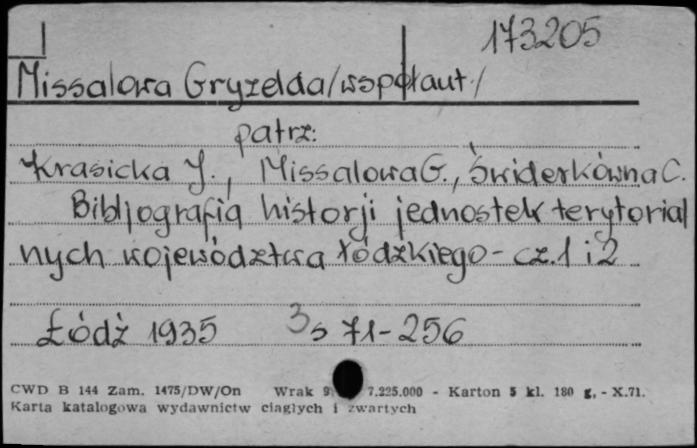 173205
Missalowa Gryzelda/współaut./
patrz:
Krasicka J., Missalowa G., Świderkówna C.
Bibljografia historji jednostek terytorial
nych województwa łódzkiego - cz. 1 i 2
Łódż 1935 3 s 71-256
CWD B 144 Zam. 1475/DW/On Wrak 9 7.225.000 - Karton 5 kl. 180 g, - X.71.
Karta katalogowa wydawnictw ciągłych i zwartych